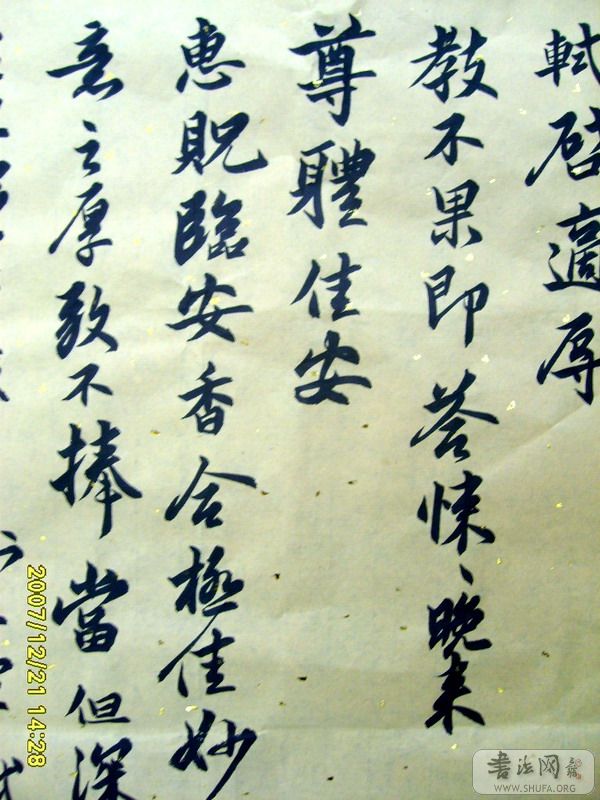 軾啓適辱
教不果即荅悚〻晚来
尊體佳安
惠貺臨安香合極佳妙
意之厚敢不捧當但深
2007/12/21 14:28
书法网
WWW.SHUFA.ORG